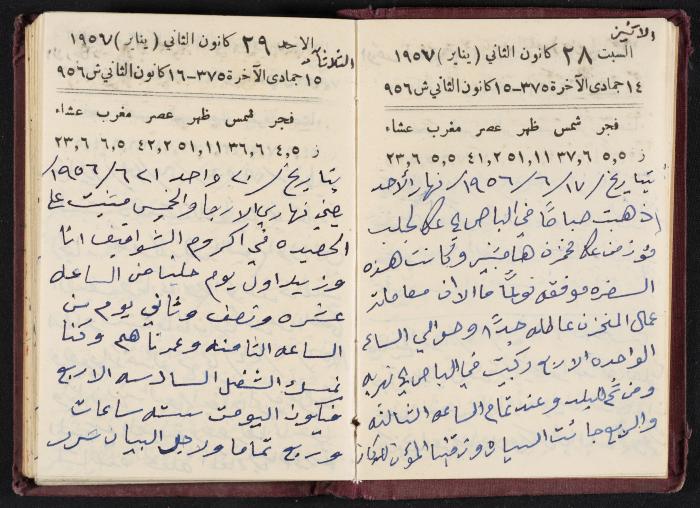 الاثنين
السبت ٢٨ كانون الثاني (يناير) ١٩٥٧
١٤ جمادى الآخرة ٣٧٥-١٥ كانون الثاني ش ٩٥٦
فجر شمس ظهر عصر مغرب عشاء
ز ٥,٥ ٣٧,٦ ٥١,١١ ٤١,٢ ٥,٥ ٢٣,٦
بتاريخ / ١٧ / ٦ / ١٩٥٦ / نهار الأحد
ذهبت صباحًا في الباص الى عكا لجلب
من عكا مخزن وكانت هذه
السفره موفقه نوعًا ما الان معاملة
عمال المخزن عاطله جدًا وحوالي الساعه
الواحده الا ربع ركبت في الباص الى نهريه
ومن ثم للبلد وعند تمام الساعه الثالثه
والربع جائت السياره ونزلنا المؤن للدكان
الثلاثاء
الاحد ٢٩ كانون الثاني (يناير) ١٩٥٧
١٥ جمادى الآخرة ٣٧٥-١٦ كانون الثاني ش ٩٥٦
فجر شمس ظهر عصر مغرب عشاء
ز ٤,٥ ٣٦,٦ ٥١,١١ ٤٢,٢ ٦,٥ ٢٣,٦
بتاريخ / ٢٠ واحد ٢١ / ٦ / ١٩٥٦ /
يعني نهاري الاربعا والخميس على
الحصيده في كروم الشواقيف انا
وزيد اول يوم من الساعه
عشره ونصف وثاني يوم من
الساعه الثامنه وكنا
الشغل السادسه الا ربع
فيكون اليوم ستة ساعات
وربع تماما ولاجل البيان